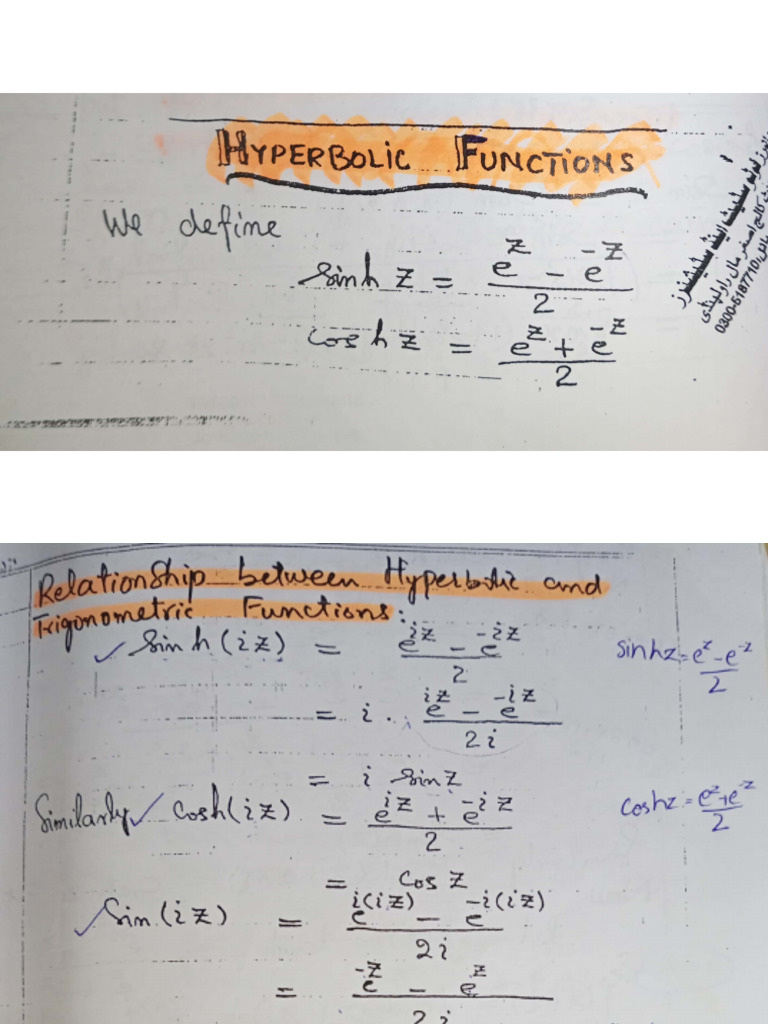 HYPERBOLIC FUNCTIONS
We define
sinh z = (e^z - e^-z)/2
cosh z = (e^z + e^-z)/2
0300-5187710
Relationship between Hyperbolic and
Trigonometric Functions:
✓ Sinh(iz) = (e^iz - e^-iz)/2
sinhz = (e^z - e^-z)/2
= i . (e^iz - e^-iz)/2i
= i sinz
Similarly ✓ cosh(iz) = (e^iz + e^-iz)/2
coshz = (e^z + e^-z)/2
= cos z
✓ Sin(iz) = (e^i(iz) - e^-i(iz))/2i
= (e^-z - e^z)/2i